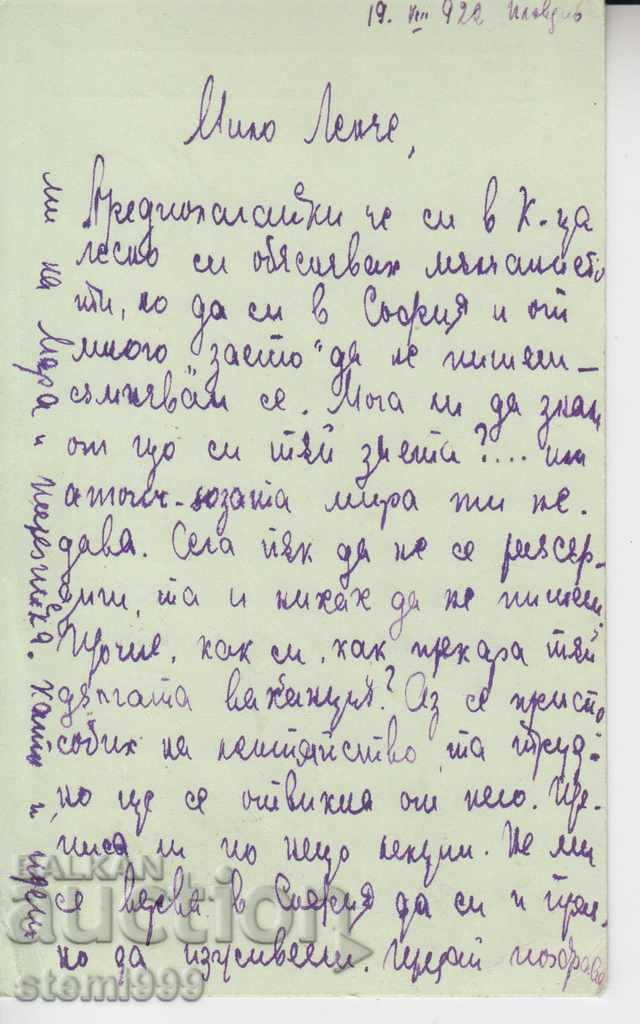 19. VIII 922 Пловдив
Мило Ленче,
Предполагайки че си в К-ца
лесно си обяснявах мълчанието
ти, но да си в София и от
много "заето" да не пишеш –
съмнявам се. Мога ли да знам
от що си тъй заета?.... или
мира ти не
дава. Сега пък да не се разсер-
диш, та и никак да не пишеш.
Прочие, как си, как прекара тъй
дългата ваканция? Аз се приспо
собих на лентяйство, та труд-
но ще се отвикна от него. Пре-
писа ли по нещо лекции. Не ми
се вярва в София да си и
но да изусивееш. Предай поздрави
ми на Мара и
BALKAN
auction
stemi999